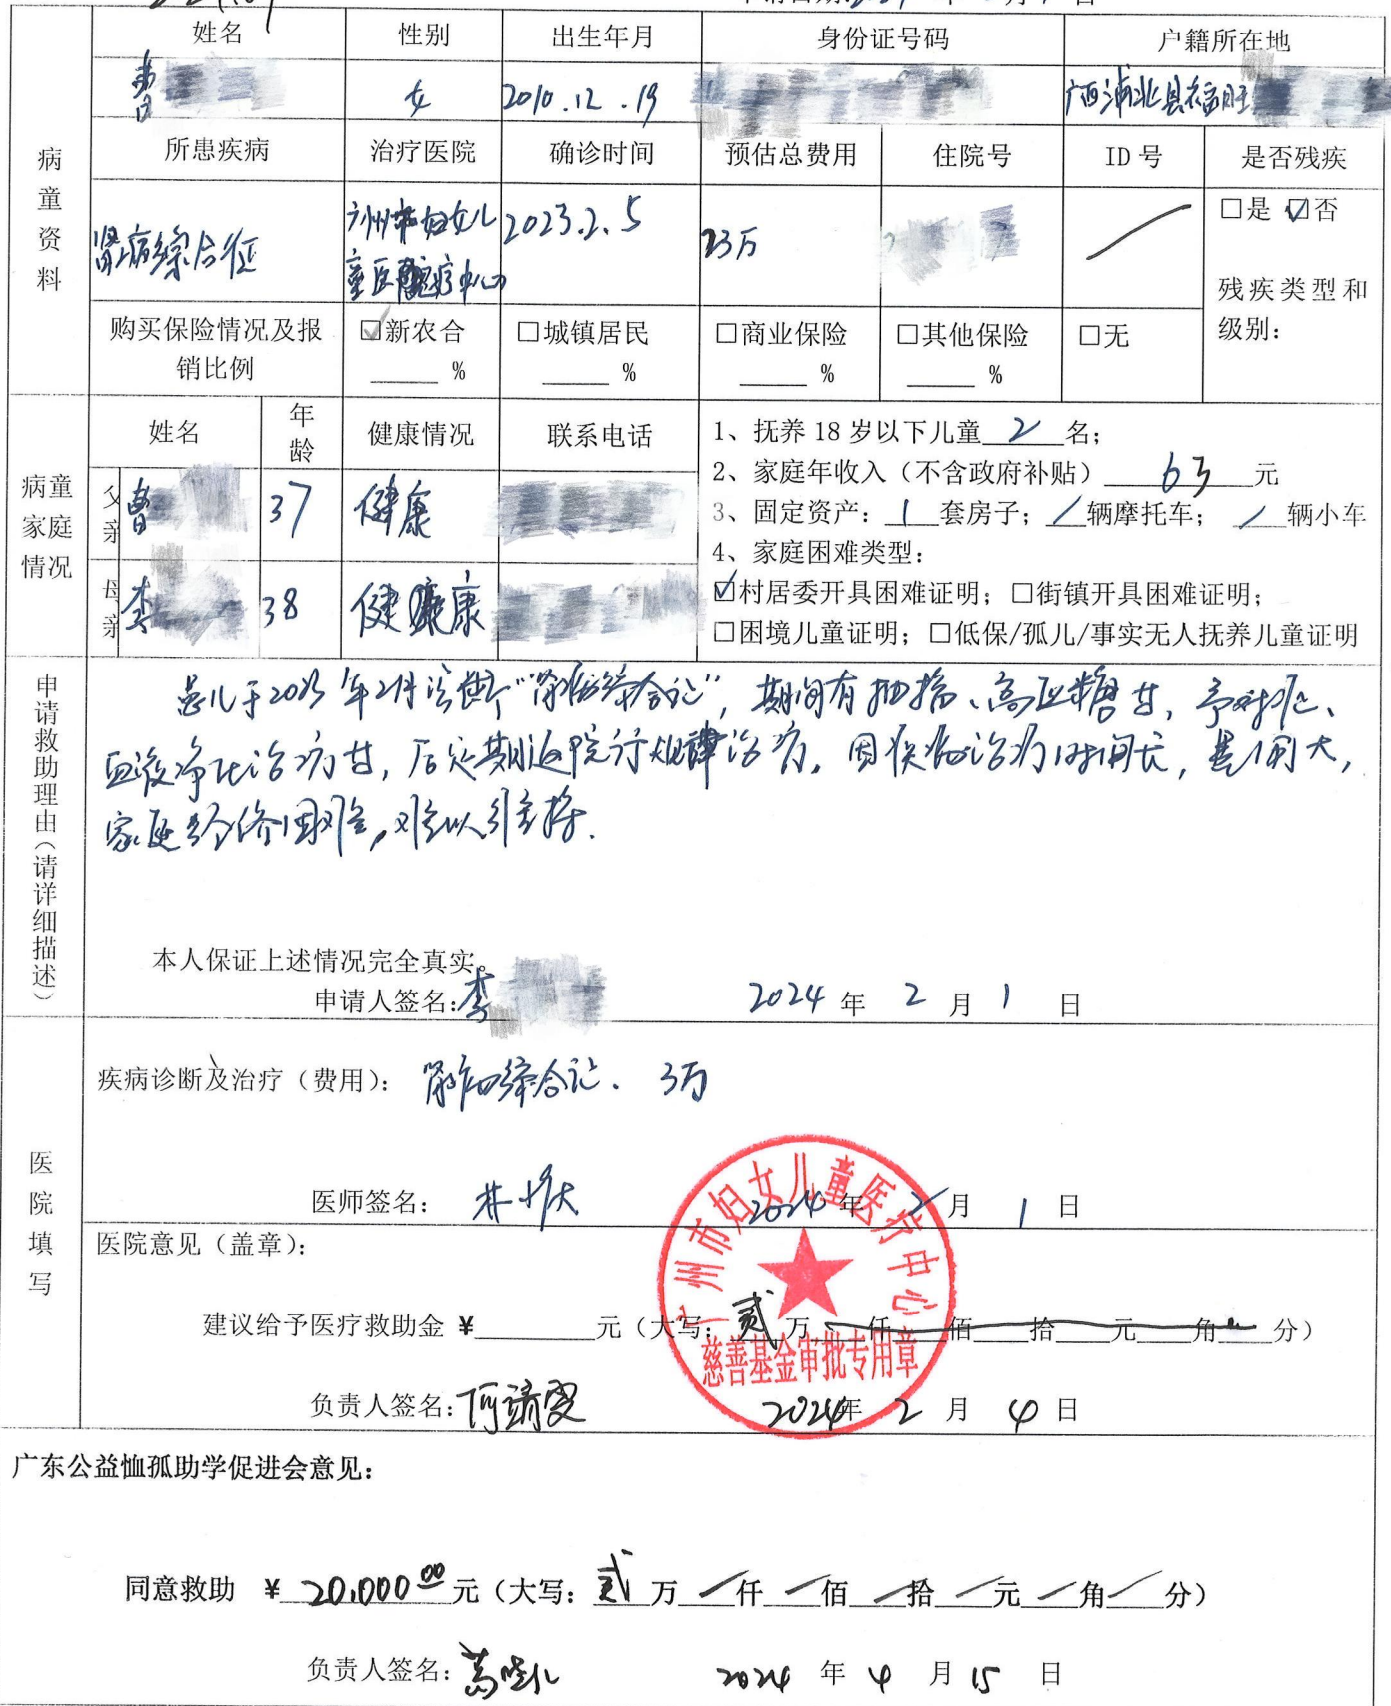 姓名 性别 出生年月 身份证号码 户籍所在地
女 2010.12.19 广西浦北县福旺
病童资料
所患疾病 治疗医院 确诊时间 预估总费用 住院号 ID号 是否残疾
肾病综合征 广州市妇女儿童医疗中心 2023.2.5 3万 ☐是 ☑否
残疾类型和级别：
购买保险情况及报销比例 ☑新农合 ____% ☐城镇居民 ____% ☐商业保险 ____% ☐其他保险 ____% ☐无
病童家庭情况
姓名 年龄 健康情况 联系电话
父亲 曹 37 健康
母亲 李 38 健康
1、抚养18岁以下儿童 2 名；
2、家庭年收入（不含政府补贴） 元
3、固定资产： 1 套房子； / 辆摩托车； / 辆小车
4、家庭困难类型：
☑村居委开具困难证明；☐街镇开具困难证明；
☐困境儿童证明；☐低保/孤儿/事实无人抚养儿童证明
申请救助理由（请详细描述）
患儿于2023年2月诊断“肾病综合征”，期间有抽搐、高血糖等，予对症、
血液净化治疗等，后定期返院行规律治疗。因疾病治疗时间长，费用大，
家庭经济困难，难以维持.
本人保证上述情况完全真实。
申请人签名：李 2024 年 2 月 1 日
医院填写
疾病诊断及治疗（费用）： 肾病综合征. 3万
医师签名： 2024 年 2 月 1 日
医院意见（盖章）：
广州市妇女儿童医疗中心
慈善基金审批专用章
建议给予医疗救助金 ¥____元（大写：贰 万 仟 佰 拾 元 角 分）
负责人签名： 2024 年 2 月 4 日
广东公益恤孤助学促进会意见：
同意救助 ¥ 20,000.00 元（大写：贰 万 / 仟 / 佰 / 拾 / 元 / 角 / 分）
负责人签名： 2024 年 4 月 15 日